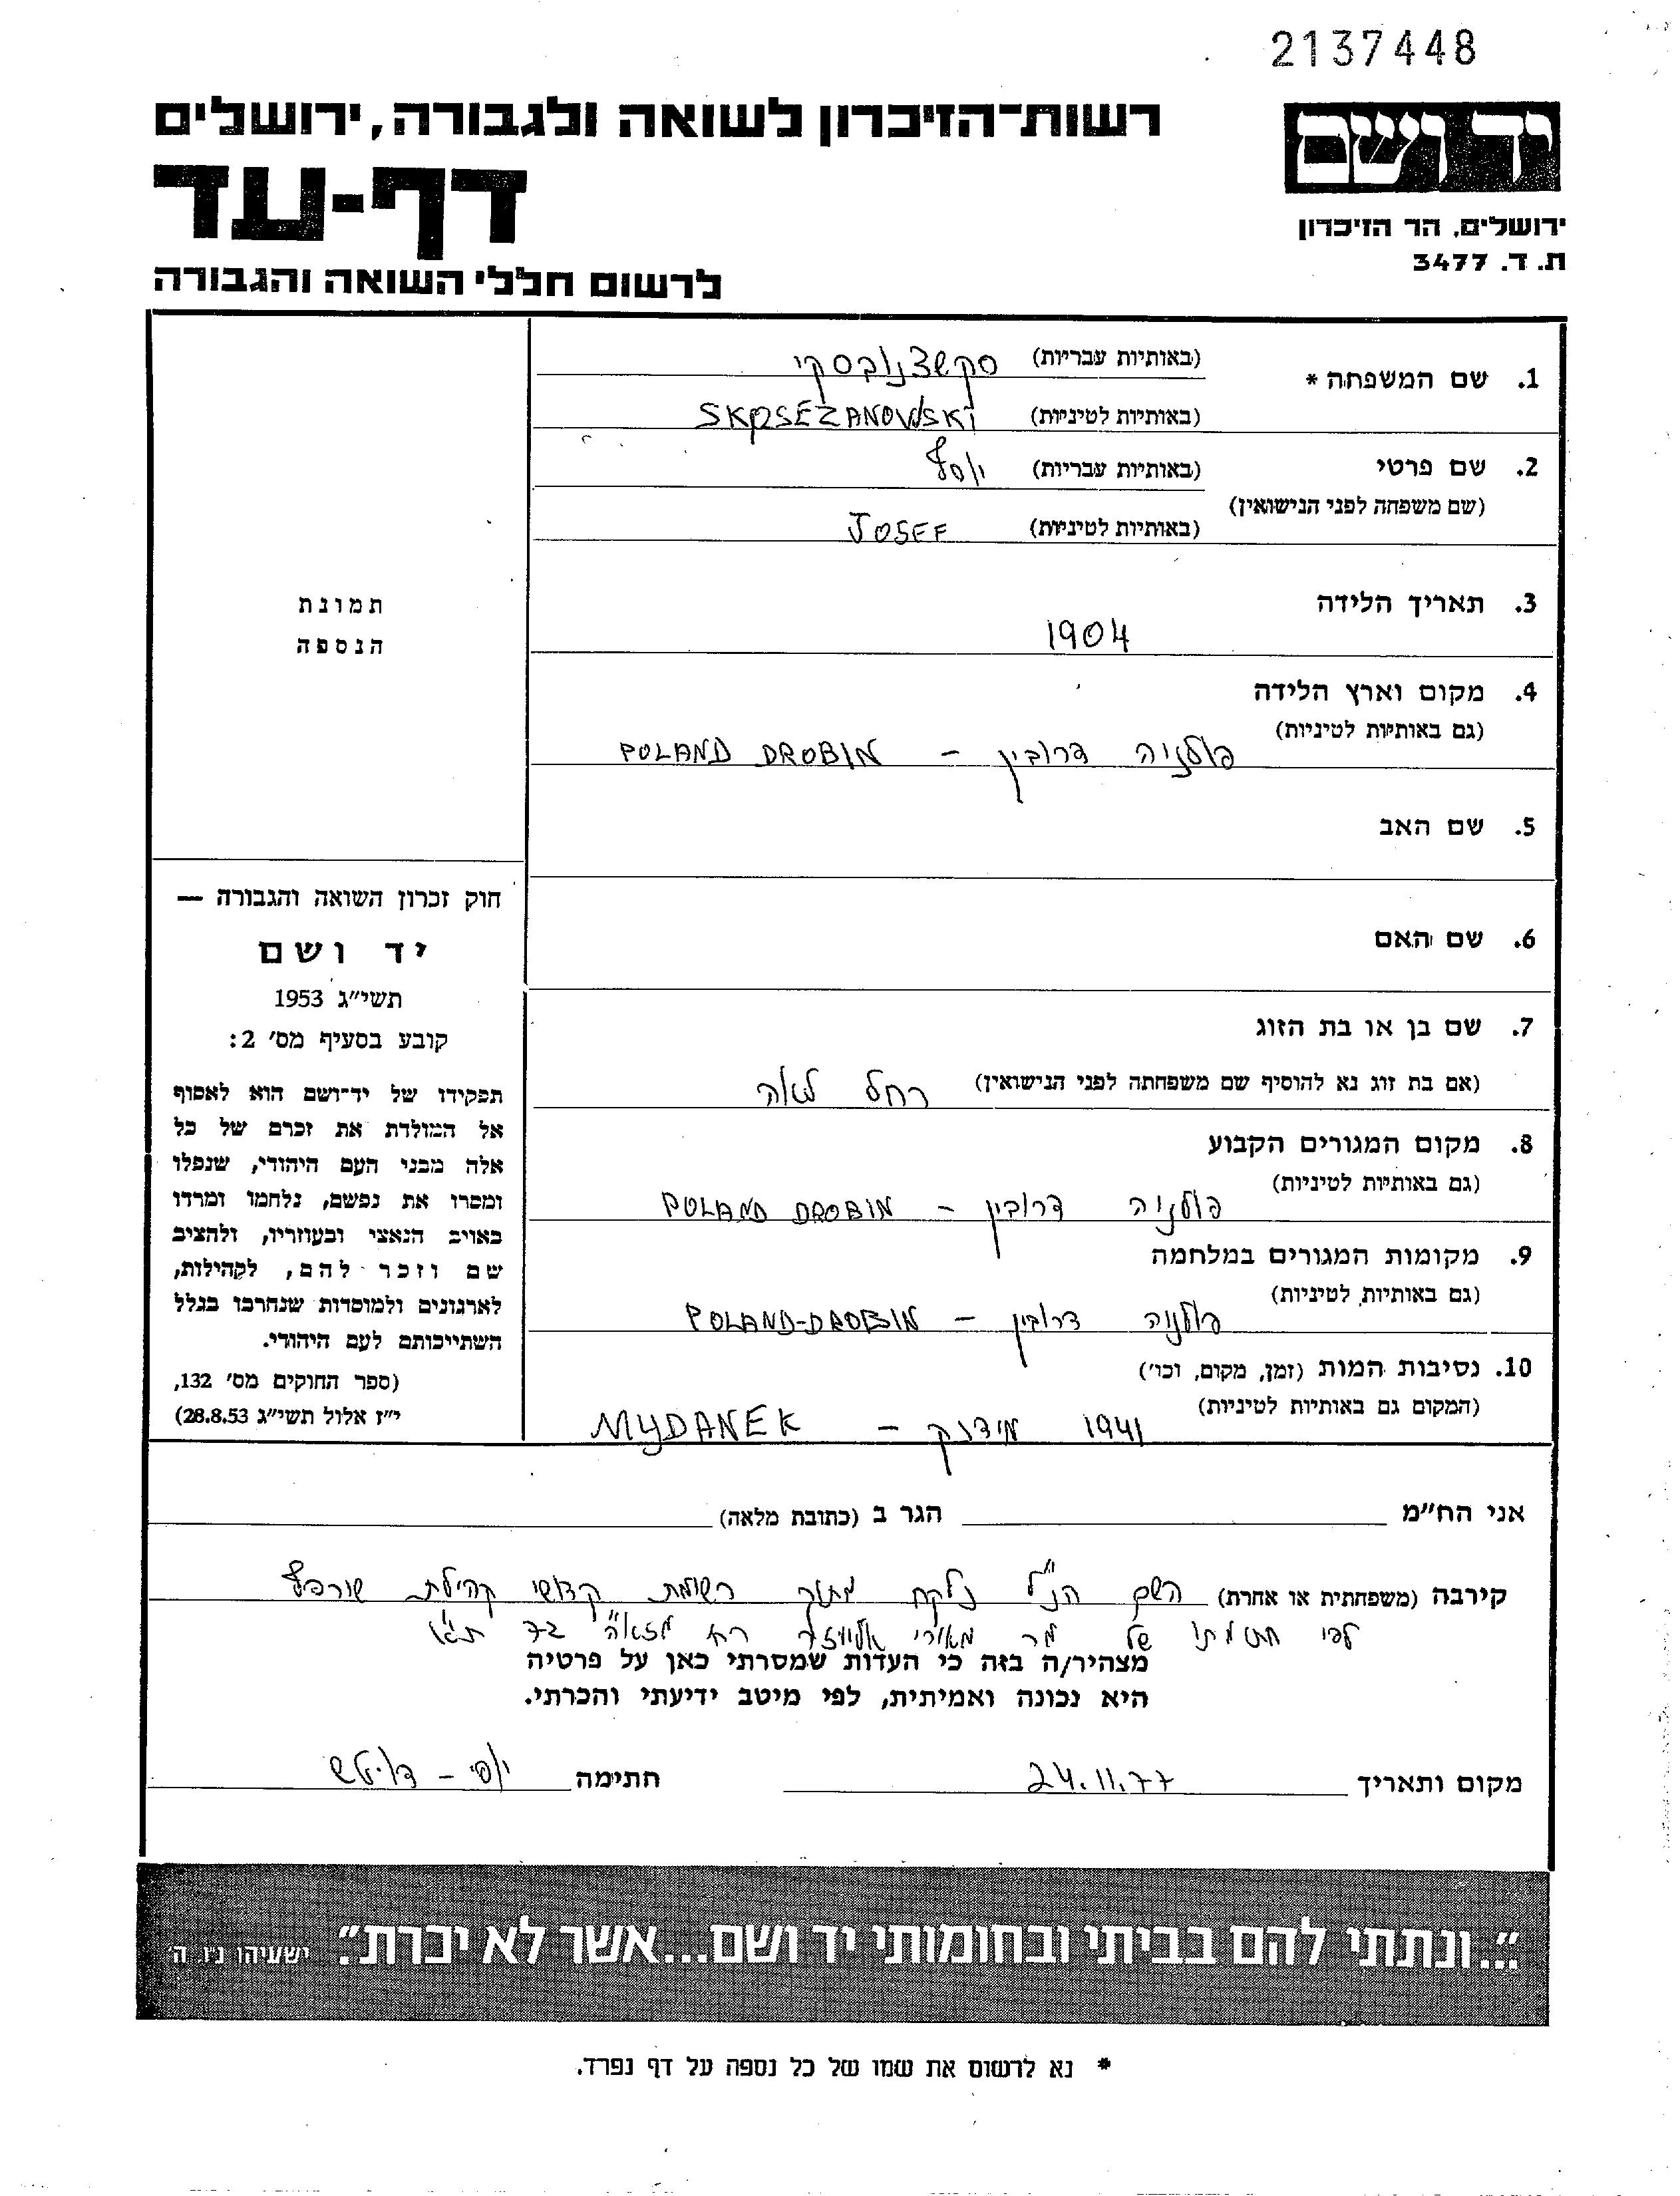 2137448
רשות־הזיכרון לשואה ולגבורה, ירושלים
יד ושם
דף-עד
ירושלים, הר הזיכרון
ת. ד. 3477
לרשום חללי השואה והגבורה
1. שם המשפחה * (באותיות עבריות) סקשצנובסקי
(באותיות לטיניות) SKRSEZANOWSKI
2. שם פרטי (באותיות עבריות) יוסף
(שם משפחה לפני הנישואין)
(באותיות לטיניות) JOSEF
3. תאריך הלידה
1904
4. מקום וארץ הלידה
(גם באותיות לטיניות) פולניה דרובין – POLAND DROBIN
5. שם האב
6. שם האם
7. שם בן או בת הזוג
(אם בת זוג נא להוסיף שם משפחתה לפני הנישואין) רחל לאה
8. מקום המגורים הקבוע
(גם באותיות לטיניות) פולניה דרובין – POLAND DROBIN
9. מקומות המגורים במלחמה
(גם באותיות לטיניות) פולניה דרובין – POLAND-DROBIN
10. נסיבות המות (זמן, מקום, וכו')
(המקום גם באותיות לטיניות) 1941 מידנק – MYDANEK
תמונת
הנספה
חוק זכרון השואה והגבורה —
יד ושם
תשי״ג 1953
קובע בסעיף מס׳ 2:
תפקידו של יד־ושם הוא לאסוף
אל המולדת את זכרם של כל
אלה מבני העם היהודי, שנפלו
ומסרו את נפשם, נלחמו ומרדו
באויב הנאצי ובעוזריו, ולהציב
שם וזכר להם, לקהילות,
לארגונים ולמוסדות שנחרבו בגלל
השתייכותם לעם היהודי.
(ספר החוקים מס׳ 132,
י״ז אלול תשי״ג 28.8.53)
אני הח״מ הגר ב (כתובת מלאה)
קירבה (משפחתית או אחרת) השם הנ"ל נלקח מתוך רשומת קדושי קהילת
לפי של מר מאורי רח מזא"ה 72 ת"א
מצהיר/ה בזה כי העדות שמסרתי כאן על פרטיה
היא נכונה ואמיתית, לפי מיטב ידיעתי והכרתי.
מקום ותאריך 24.11.77 חתימה
״...ונתתי להם בביתי ובחומותי יד ושם...אשר לא יכרת״. ישעיהו נ״ו ה׳
* נא לרשום את שמו של כל נספה על דף נפרד.